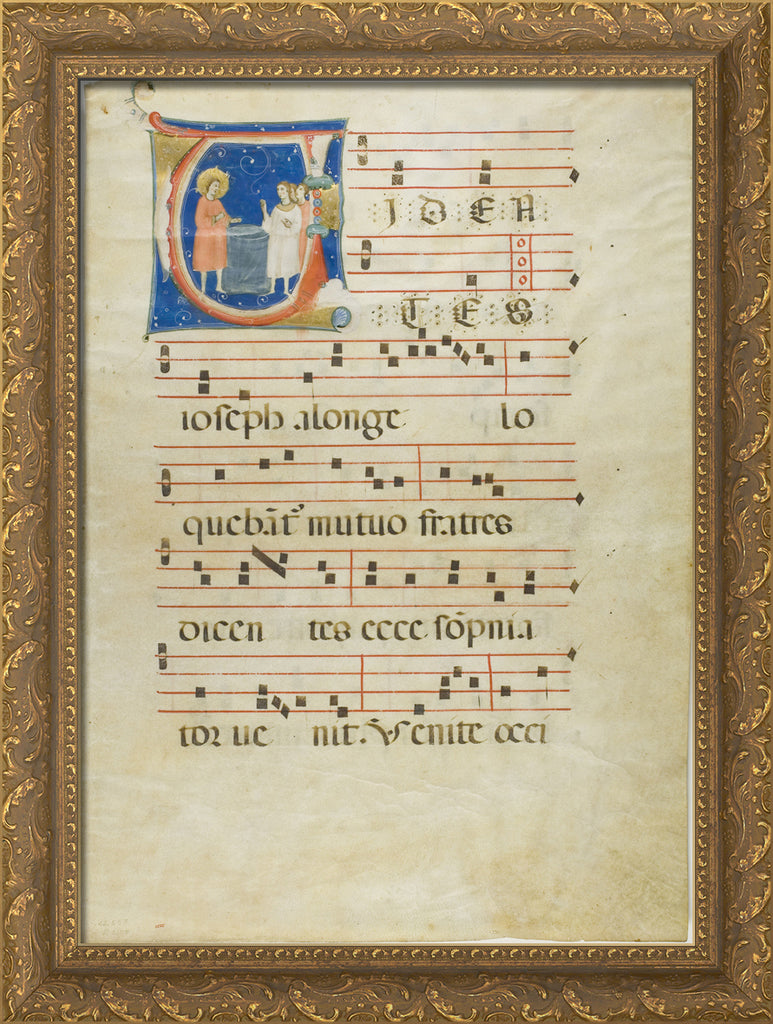 VIDEN
TES
ioseph alonge lo
quebāt᷑ mutuo fratres
dicen tes ecce sōpnia
tor ue nit. ℣ Venite occi